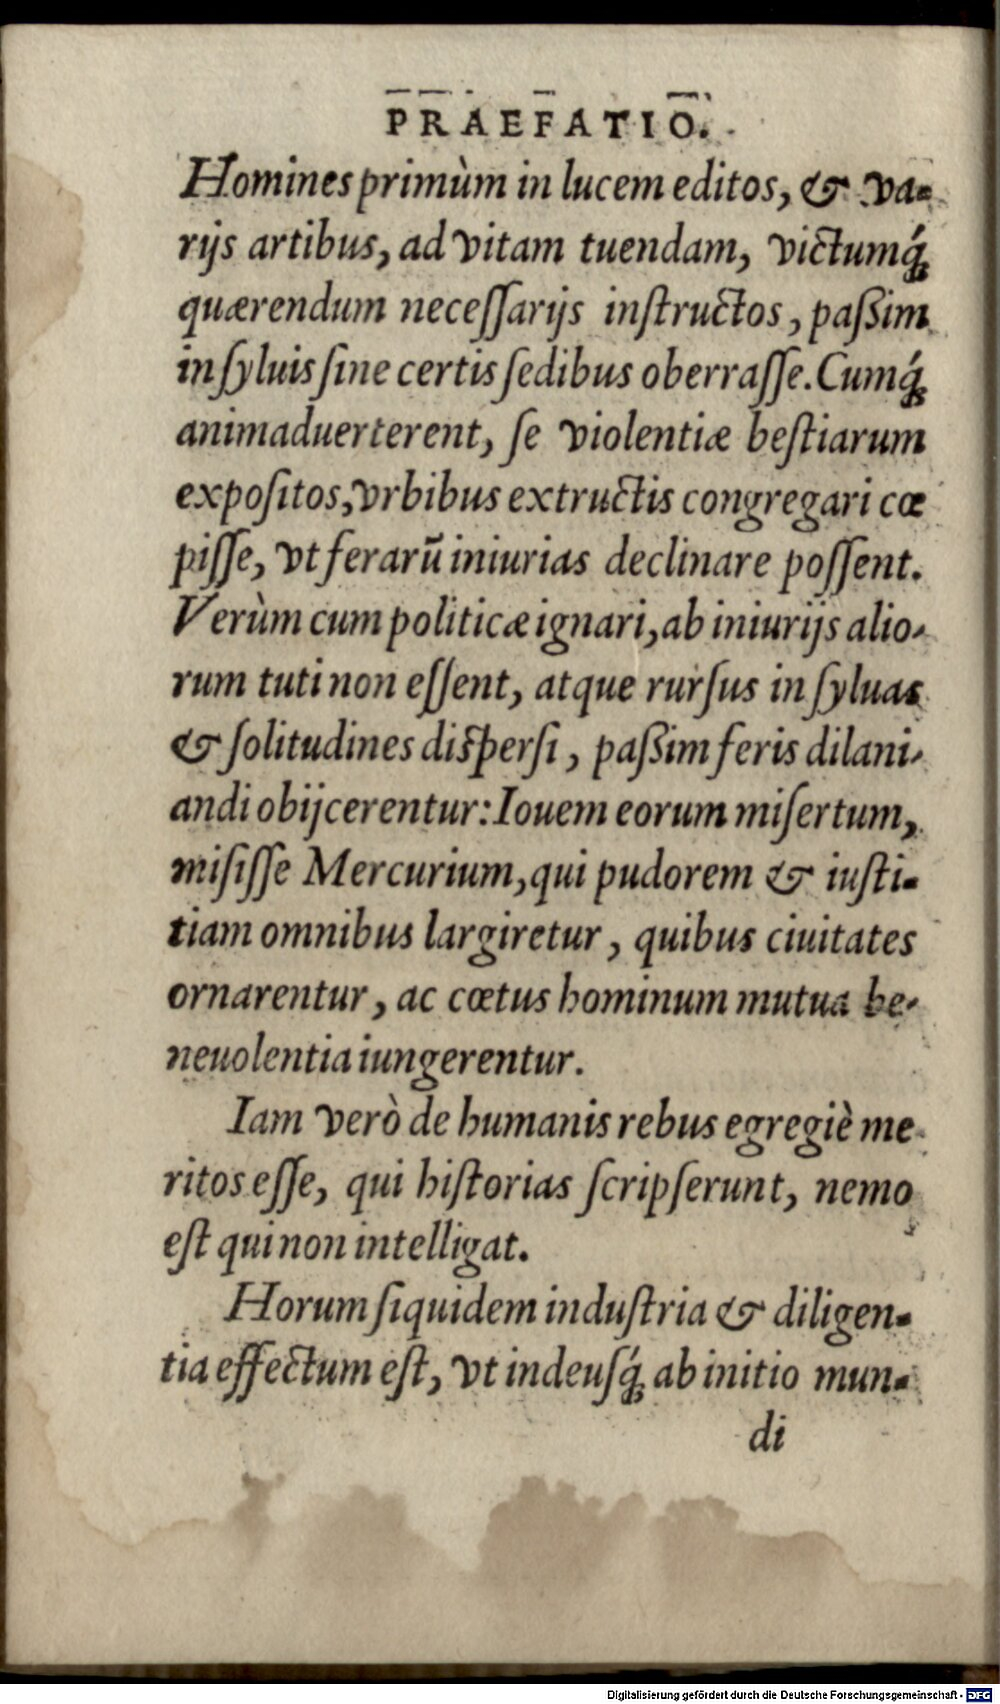 PRAEFATIO.
Homines primùm in lucem editos, & va-
rijs artibus, ad vitam tuendam, victumq́;
quærendum necessarijs instructos, passim
in syluis sine certis sedibus oberrasse. Cumq́;
animaduerterent, se violentiæ bestiarum
expositos, vrbibus extructis congregari cœ
pisse, vt ferarũ iniurias declinare possent.
Verùm cum politicæ ignari, ab iniurijs alio-
rum tuti non essent, atque rursus in syluas
& solitudines dispersi, passim feris dilani-
andi obijcerentur: Iouem eorum misertum,
misisse Mercurium, qui pudorem & iusti-
tiam omnibus largiretur, quibus ciuitates
ornarentur, ac cœtus hominum mutua be-
neuolentia iungerentur.
Iam verò de humanis rebus egregiè me
ritos esse, qui historias scripserunt, nemo
est qui non intelligat.
Horum siquidem industria & diligen-
tia effectum est, vt indeusq́; ab initio mun-
di
Digitalisierung gefördert durch die Deutsche Forschungsgemeinschaft - DFG